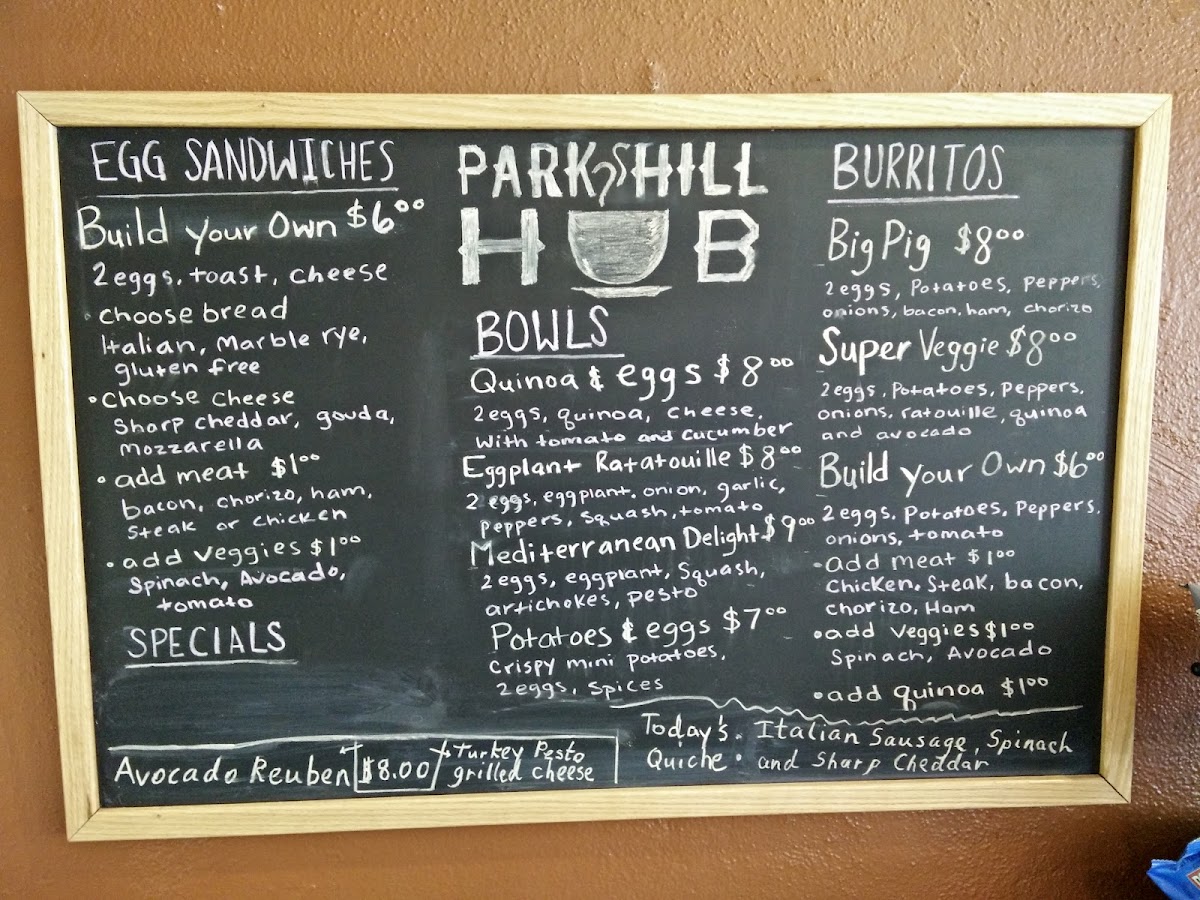 EGG SANDWICHES
Build your Own $6⁰⁰
2 eggs, toast, cheese
• choose bread
Italian, Marble rye,
gluten free
• choose cheese
Sharp cheddar, gouda,
mozzarella
• add meat $1⁰⁰
bacon, chorizo, ham,
steak or chicken
• add veggies $1⁰⁰
Spinach, Avocado,
tomato
SPECIALS
Avocado Reuben $8.00 Turkey Pesto
grilled cheese
PARK HILL
HUB
BOWLS
Quinoa & eggs $8⁰⁰
2 eggs, quinoa, cheese,
with tomato and cucumber
Eggplant Ratatouille $8⁰⁰
2 eggs, eggplant, onion, garlic,
peppers, squash, tomato
Mediterranean Delight $9⁰⁰
2 eggs, eggplant, Squash,
artichokes, pesto
Potatoes & eggs $7⁰⁰
Crispy mini potatoes,
2 eggs, spices
BURRITOS
Big Pig $8⁰⁰
2 eggs, Potatoes, peppers,
onions, bacon, ham, chorizo
Super Veggie $8⁰⁰
2 eggs, Potatoes, peppers,
onions, ratouille, quinoa
and avocado
Build your Own $6⁰⁰
2 eggs, Potatoes, Peppers,
onions, tomato
• add meat $1⁰⁰
Chicken, Steak, bacon,
chorizo, Ham
• add veggies $1⁰⁰
Spinach, Avocado
• add quinoa $1⁰⁰
Today's Italian Sausage, Spinach
Quiche: and Sharp Cheddar